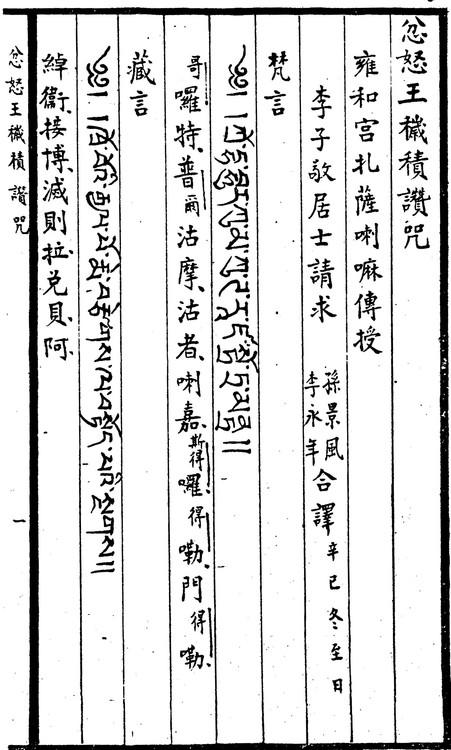 忿怒王穢積讚咒
雍和宮扎薩喇嘛傳授
李子敬居士請求 孫景風 李永年 合譯 辛巳冬至日
梵言
哥囉特普爾沽摩沽者喇嘉斯得囉得嘞門得嘞
藏言
༄། །ཁྲོ་བོའི་རྒྱལ་པོ་སྨེ་བརྩེགས་ལ་བསྟོད་པའི་སྔགས།།
綽衞接博滅則拉兌貝阿
忿怒王穢積讚咒
一